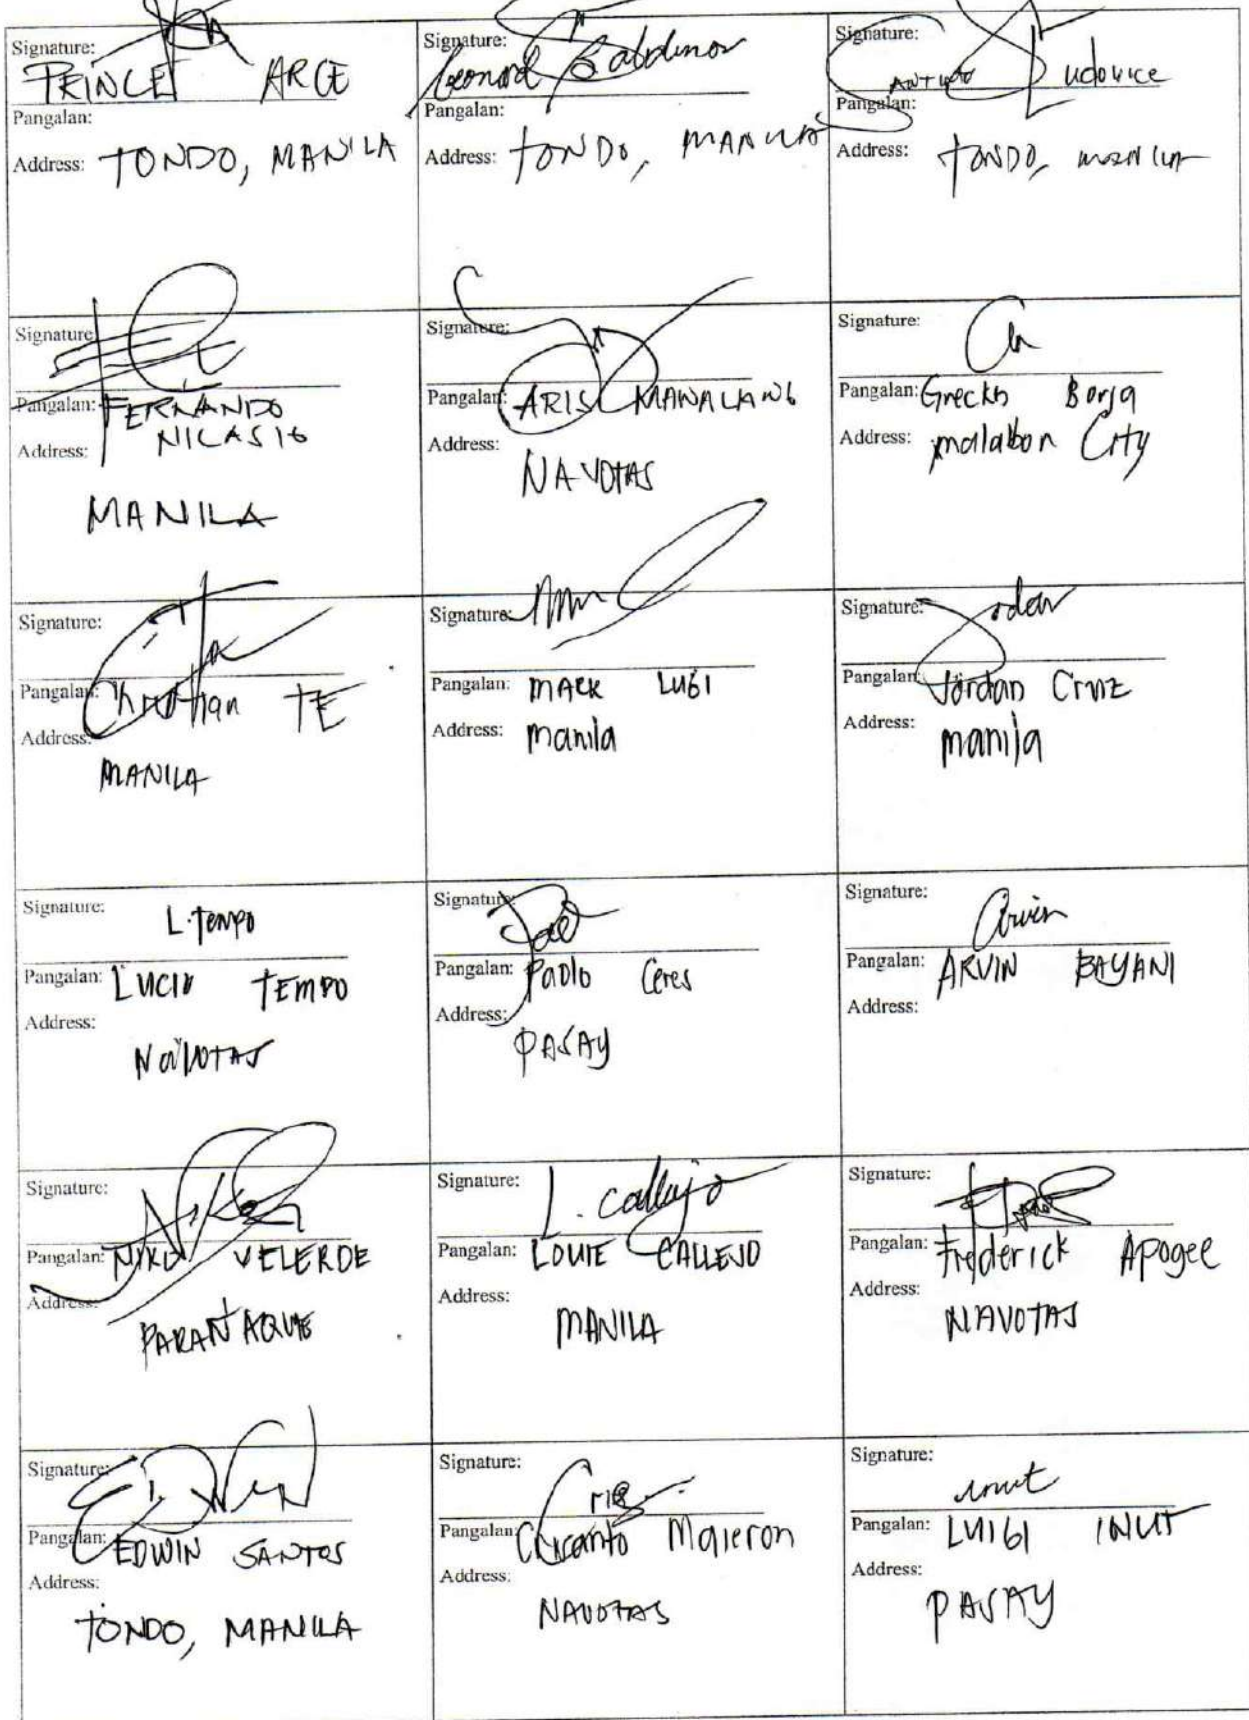 Signature:
PRINCE ARCE
Pangalan:
Address: TONDO, MANILA
Signature:
Leonard
Pangalan:
Address: TONDO, MANILA
Signature:
Ludovice
Pangalan:
Address: TONDO, MANILA
Signature
Pangalan: FERNANDO
NICASIO
Address:
MANILA
Signature:
Pangalan: ARIS MANALANG
Address:
NAVOTAS
Signature:
Pangalan: Greckts Borja
Address: malabon City
Signature:
Pangalan: Christian TE
Address:
MANILA
Signature:
Pangalan: MARK LUGI
Address: manila
Signature: Jordan
Pangalan: Jordan Cruz
Address: manila
Signature: L. Tempo
Pangalan: LUCIO TEMPO
Address:
NAVOTAS
Signature:
Pangalan: Paolo Ceres
Address:
PASAY
Signature: Arvin
Pangalan: ARVIN BAYANI
Address:
Signature:
Pangalan: NIKO VELERDE
Address:
PARAÑAQUE
Signature: L. Callejo
Pangalan: LOUIE CALLEJO
Address:
MANILA
Signature:
Pangalan: Frederick Apogee
Address:
NAVOTAS
Signature: EDWIN
Pangalan: EDWIN SANTOS
Address:
TONDO, MANILA
Signature: Cris
Pangalan: Maieron
Address:
NAVOTAS
Signature: inut
Pangalan: LUIGI INUT
Address:
PASAY